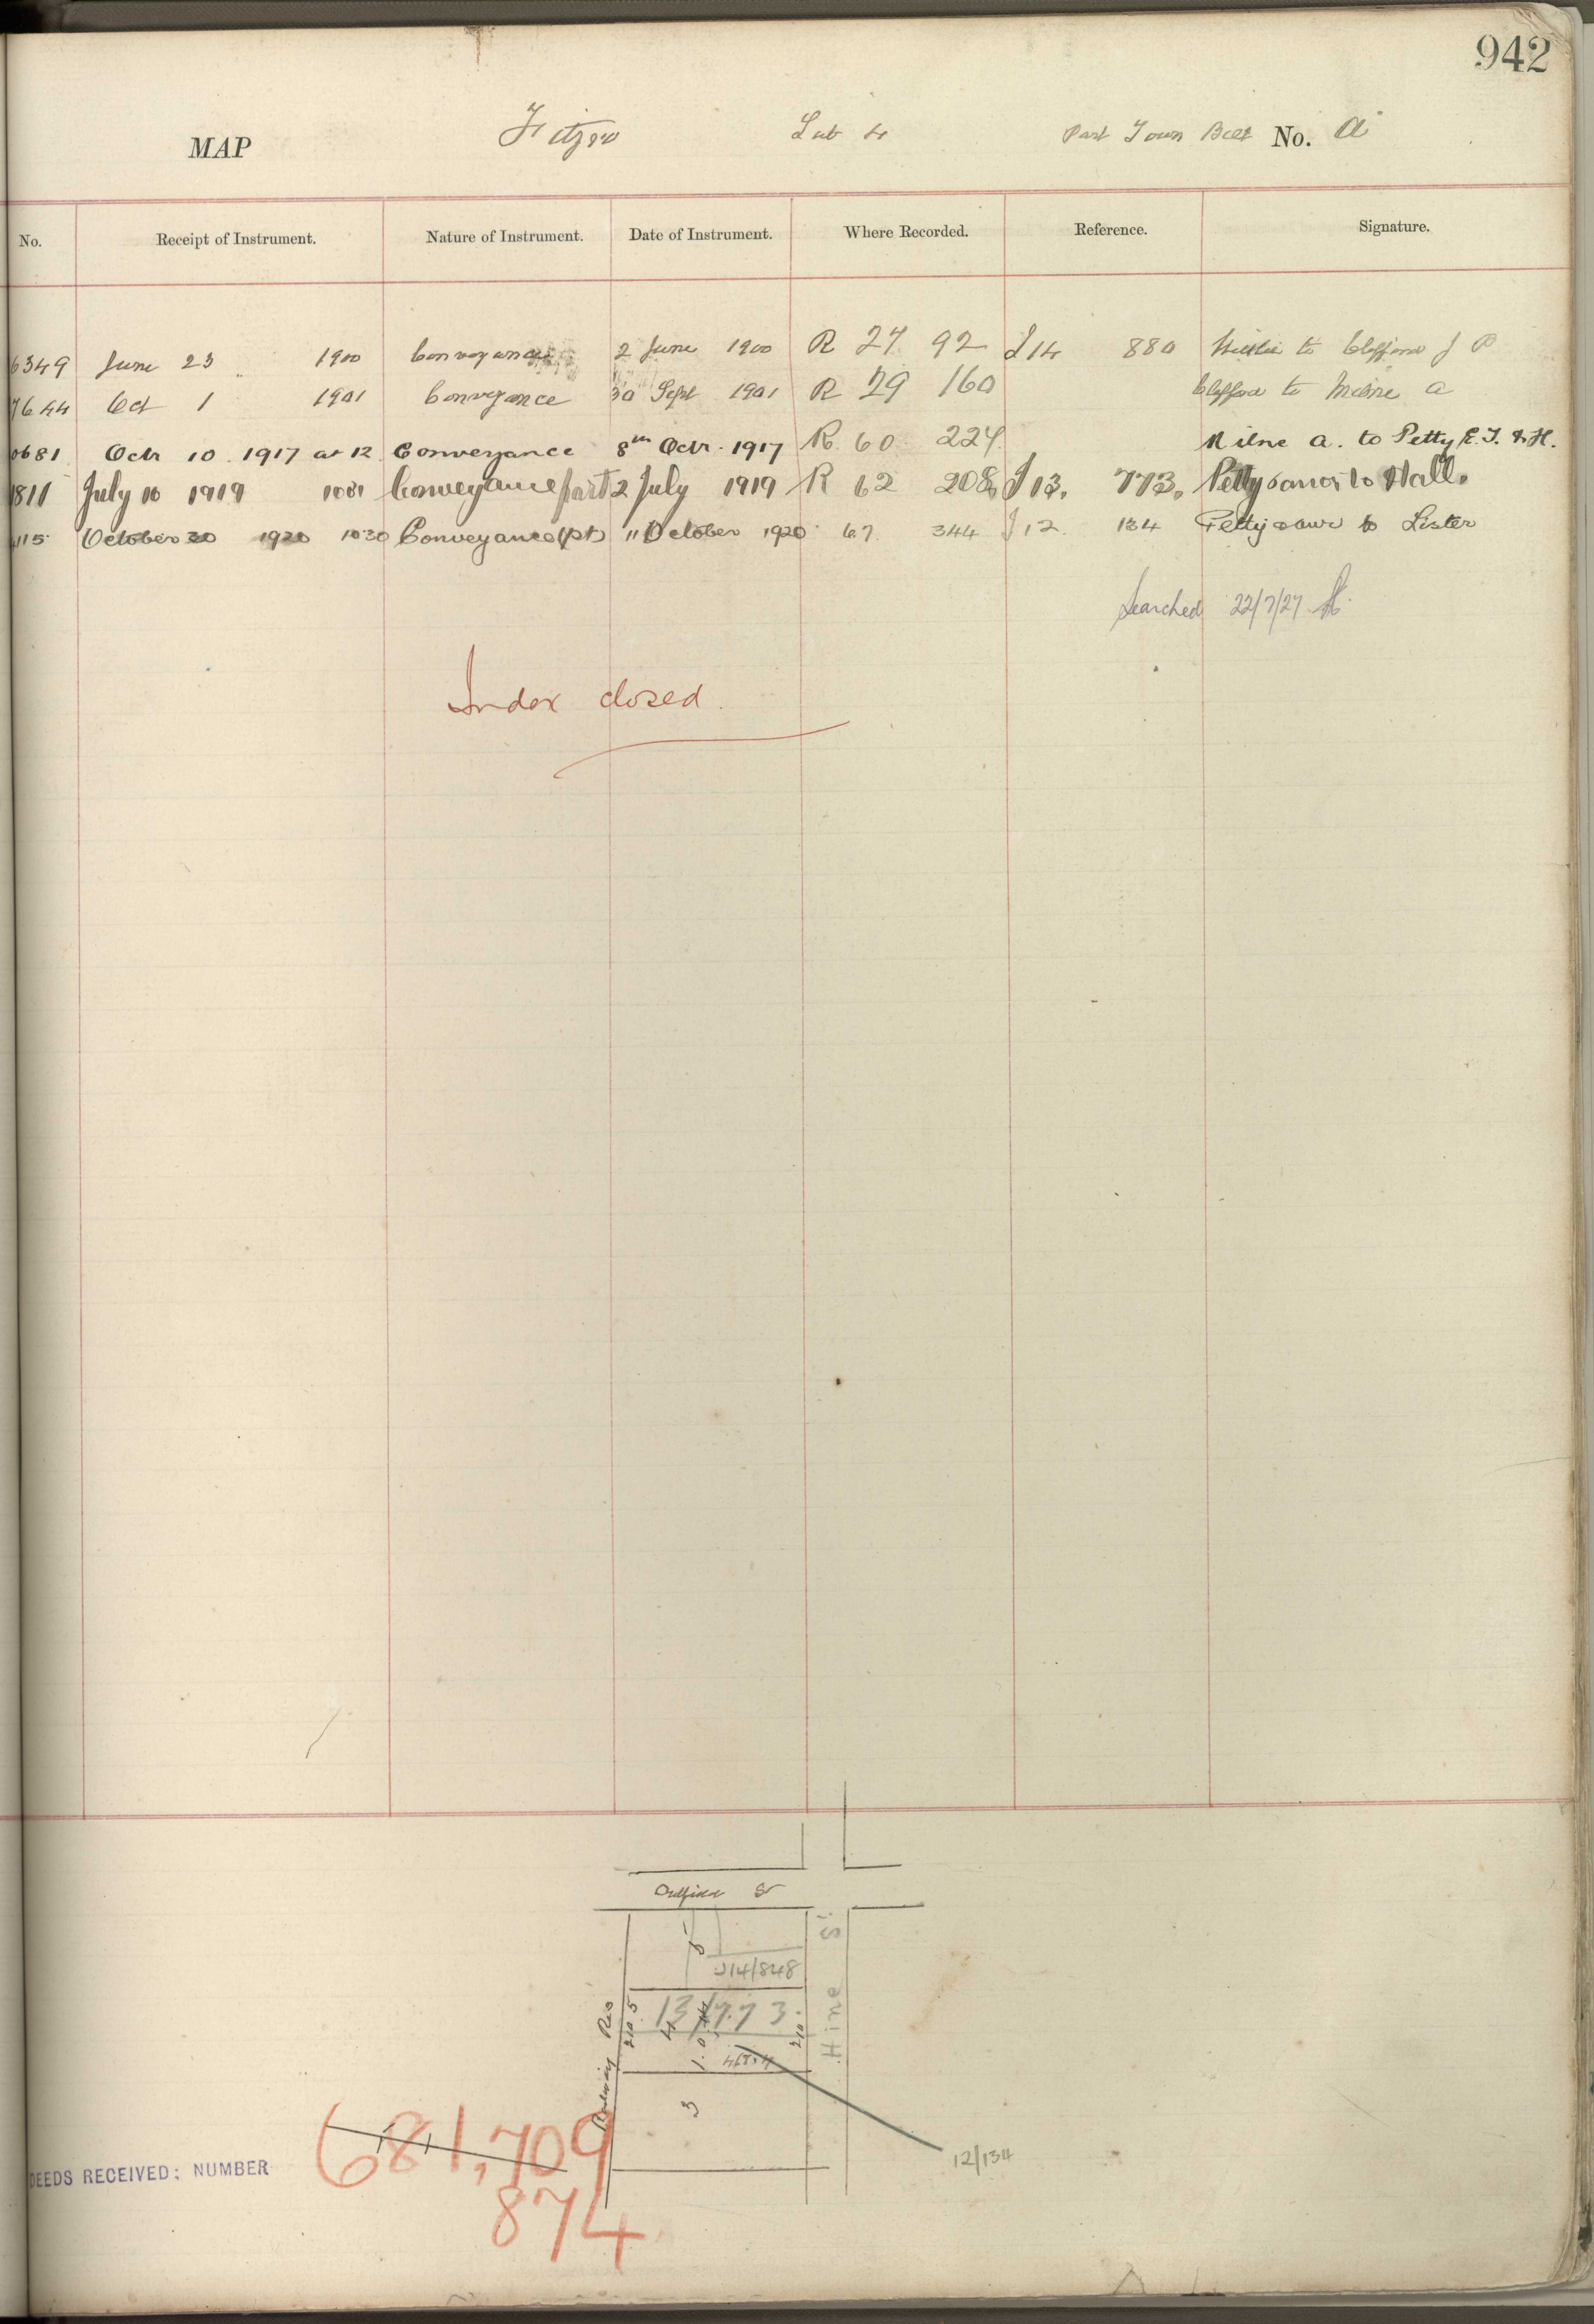 942
MAP Fitzro Sub 4 Part Town Belt No. A
No. Receipt of Instrument. Nature of Instrument. Date of Instrument. Where Recorded. Reference. Signature.
6349 June 23 1900 Conveyance 2 June 1900 R 27 92 I 14 880 to Clifford J P
7644 Oct 1 1901 Conveyance 30 Sept 1901 R 29 160 Clifford to Milne A
0681 Octr 10 1917 at 12 Conveyance 8th Octr. 1917 R 60 224 Milne A. to Petty E. T. & H.
1811 July 10 1919 Conveyance part 2 July 1919 R 62 208 I 13. 773. Petty & anor to Hall.
115 October 20 1920 10 30 Conveyance (pt) 11 October 1920 67 344 I 12. 134 Petty & anr to Lister
Searched 22/7/27
Index closed.
St
5
I14/848
Hine St.
Railway Res
210.5
13/773
4
210.
1.0.
3
681,709
12/134
DEEDS RECEIVED: NUMBER
874